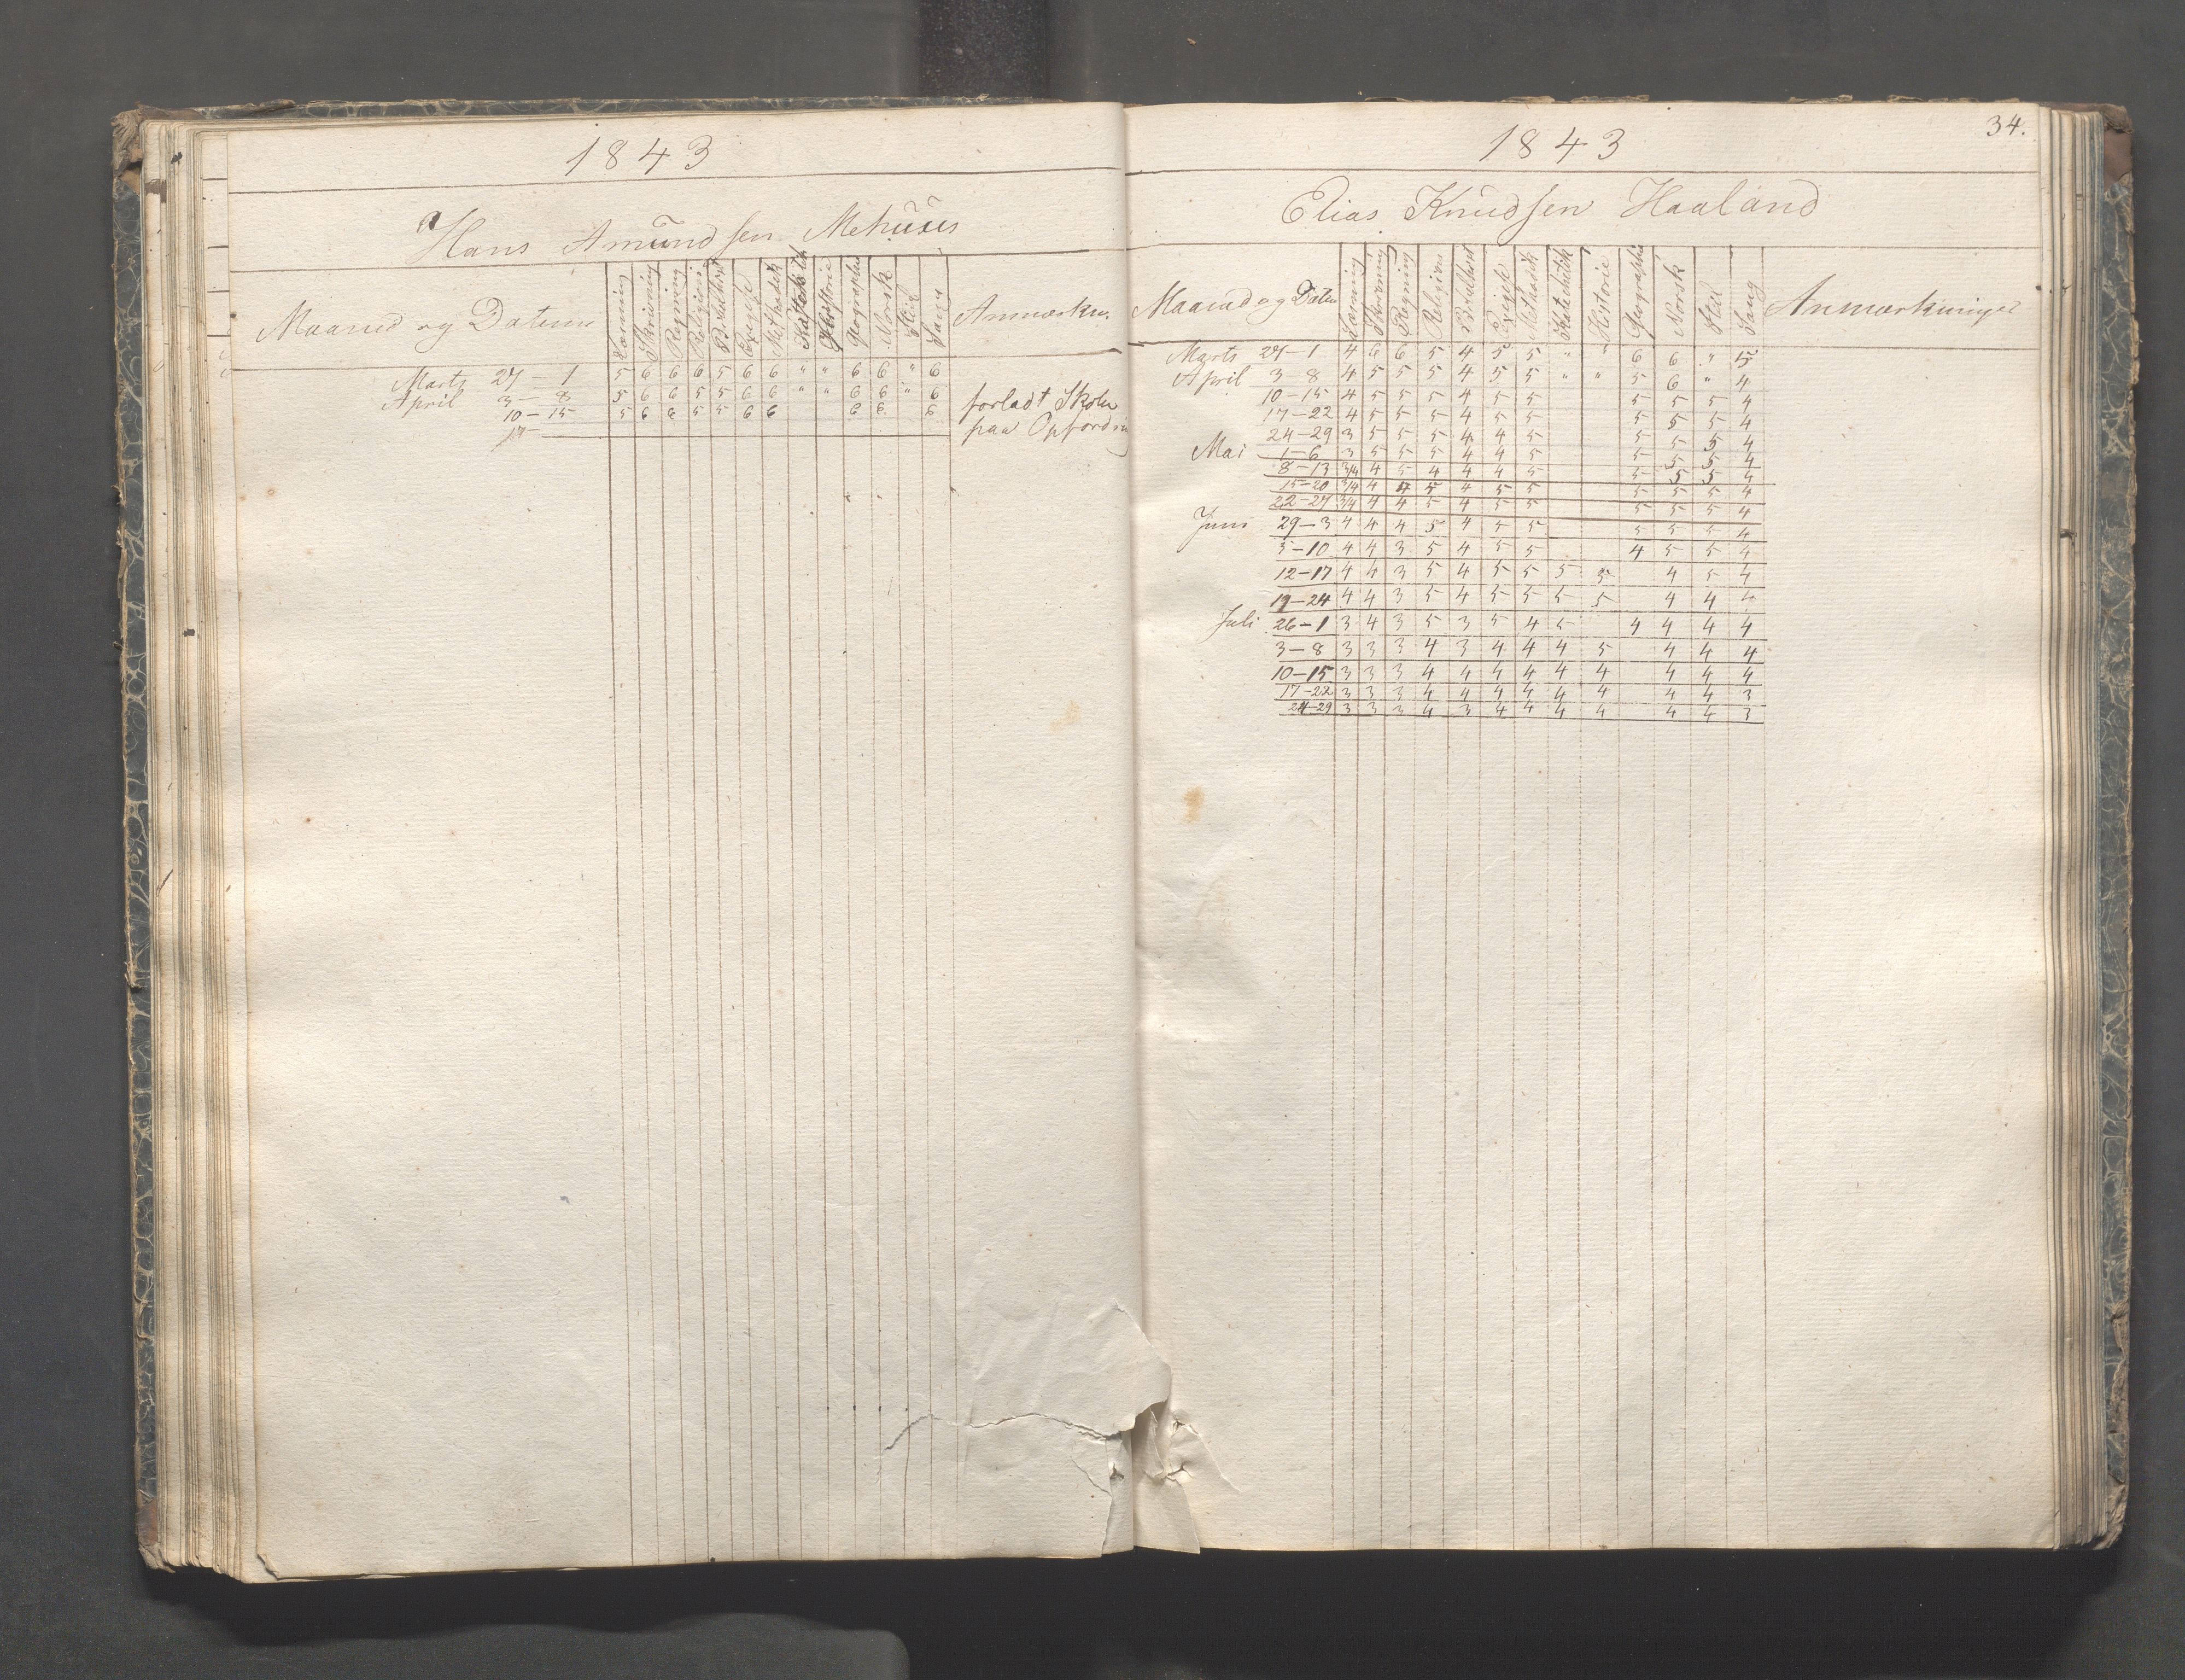 1843
Hans Amundsen Mehuus
Maaned og Datum Læsning Skrivning Regning Religion Bibelhist Exegese Methodik Katechetik Historie Geographi Norsk Stiil Sang Anmærkn.
Marts 27 – 1 5 6 6 6 5 6 6 " " 6 6 " 6
April 3 – 8 5 6 6 5 5 6 6 " " 6 6 " 6 forladt Skolen
10 – 15 5 6 6 5 5 6 6 6 6 6 paa Opfordring
17
34.
1843
Elias Knudsen Haaland
Maaned og Datum Læsning Skrivning Regning Religion Bibelhist Exegese Methodik Katechetik Historie Geographi Norsk Stiil Sang Anmærkninger
Marts 27 – 1 4 6 6 5 4 5 5 " " 6 6 " 5
April 3 – 8 4 5 5 5 4 5 5 " " 5 6 " 4
10 – 15 4 5 5 5 4 5 5 5 5 5 4
17 – 22 4 5 5 5 4 5 5 5 5 5 4
24 – 29 3 5 5 5 4 4 5 5 5 5 4
Mai 1 – 6 3 5 5 5 4 4 5 5 5 5 4
8 – 13 3/4 4 5 4 4 4 5 5 5 5 4
15 – 20 3/4 4 4 5 4 5 5 5 5 5 4
22 – 27 3/4 4 4 5 4 5 5 5 5 5 4
Juni 29 – 3 4 4 4 5 4 5 5 5 5 5 4
5 – 10 4 4 3 5 4 5 5 4 5 5 4
12 – 17 4 4 3 5 4 5 5 5 5 4 5 4
19 – 24 4 4 3 5 4 5 5 5 5 4 4 4
Juli 26 – 1 3 4 3 5 3 5 4 5 4 4 4 4
3 – 8 3 3 3 4 3 4 4 4 5 4 4 4
10 – 15 3 3 3 4 4 4 4 4 4 4 4 4
17 – 22 3 3 3 4 4 4 4 4 4 4 4 3
24 – 29 3 3 3 4 3 4 4 4 4 4 4 3